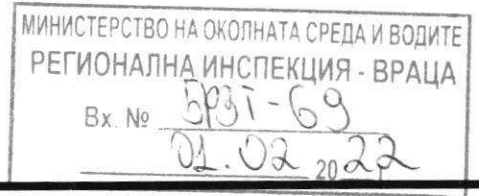 МИНИСТЕРСТВО НА ОКОЛНАТА СРЕДА И ВОДИТЕ
РЕГИОНАЛНА ИНСПЕКЦИЯ - ВРАЦА
Вх. № БРЗТ-69
01.02 2022